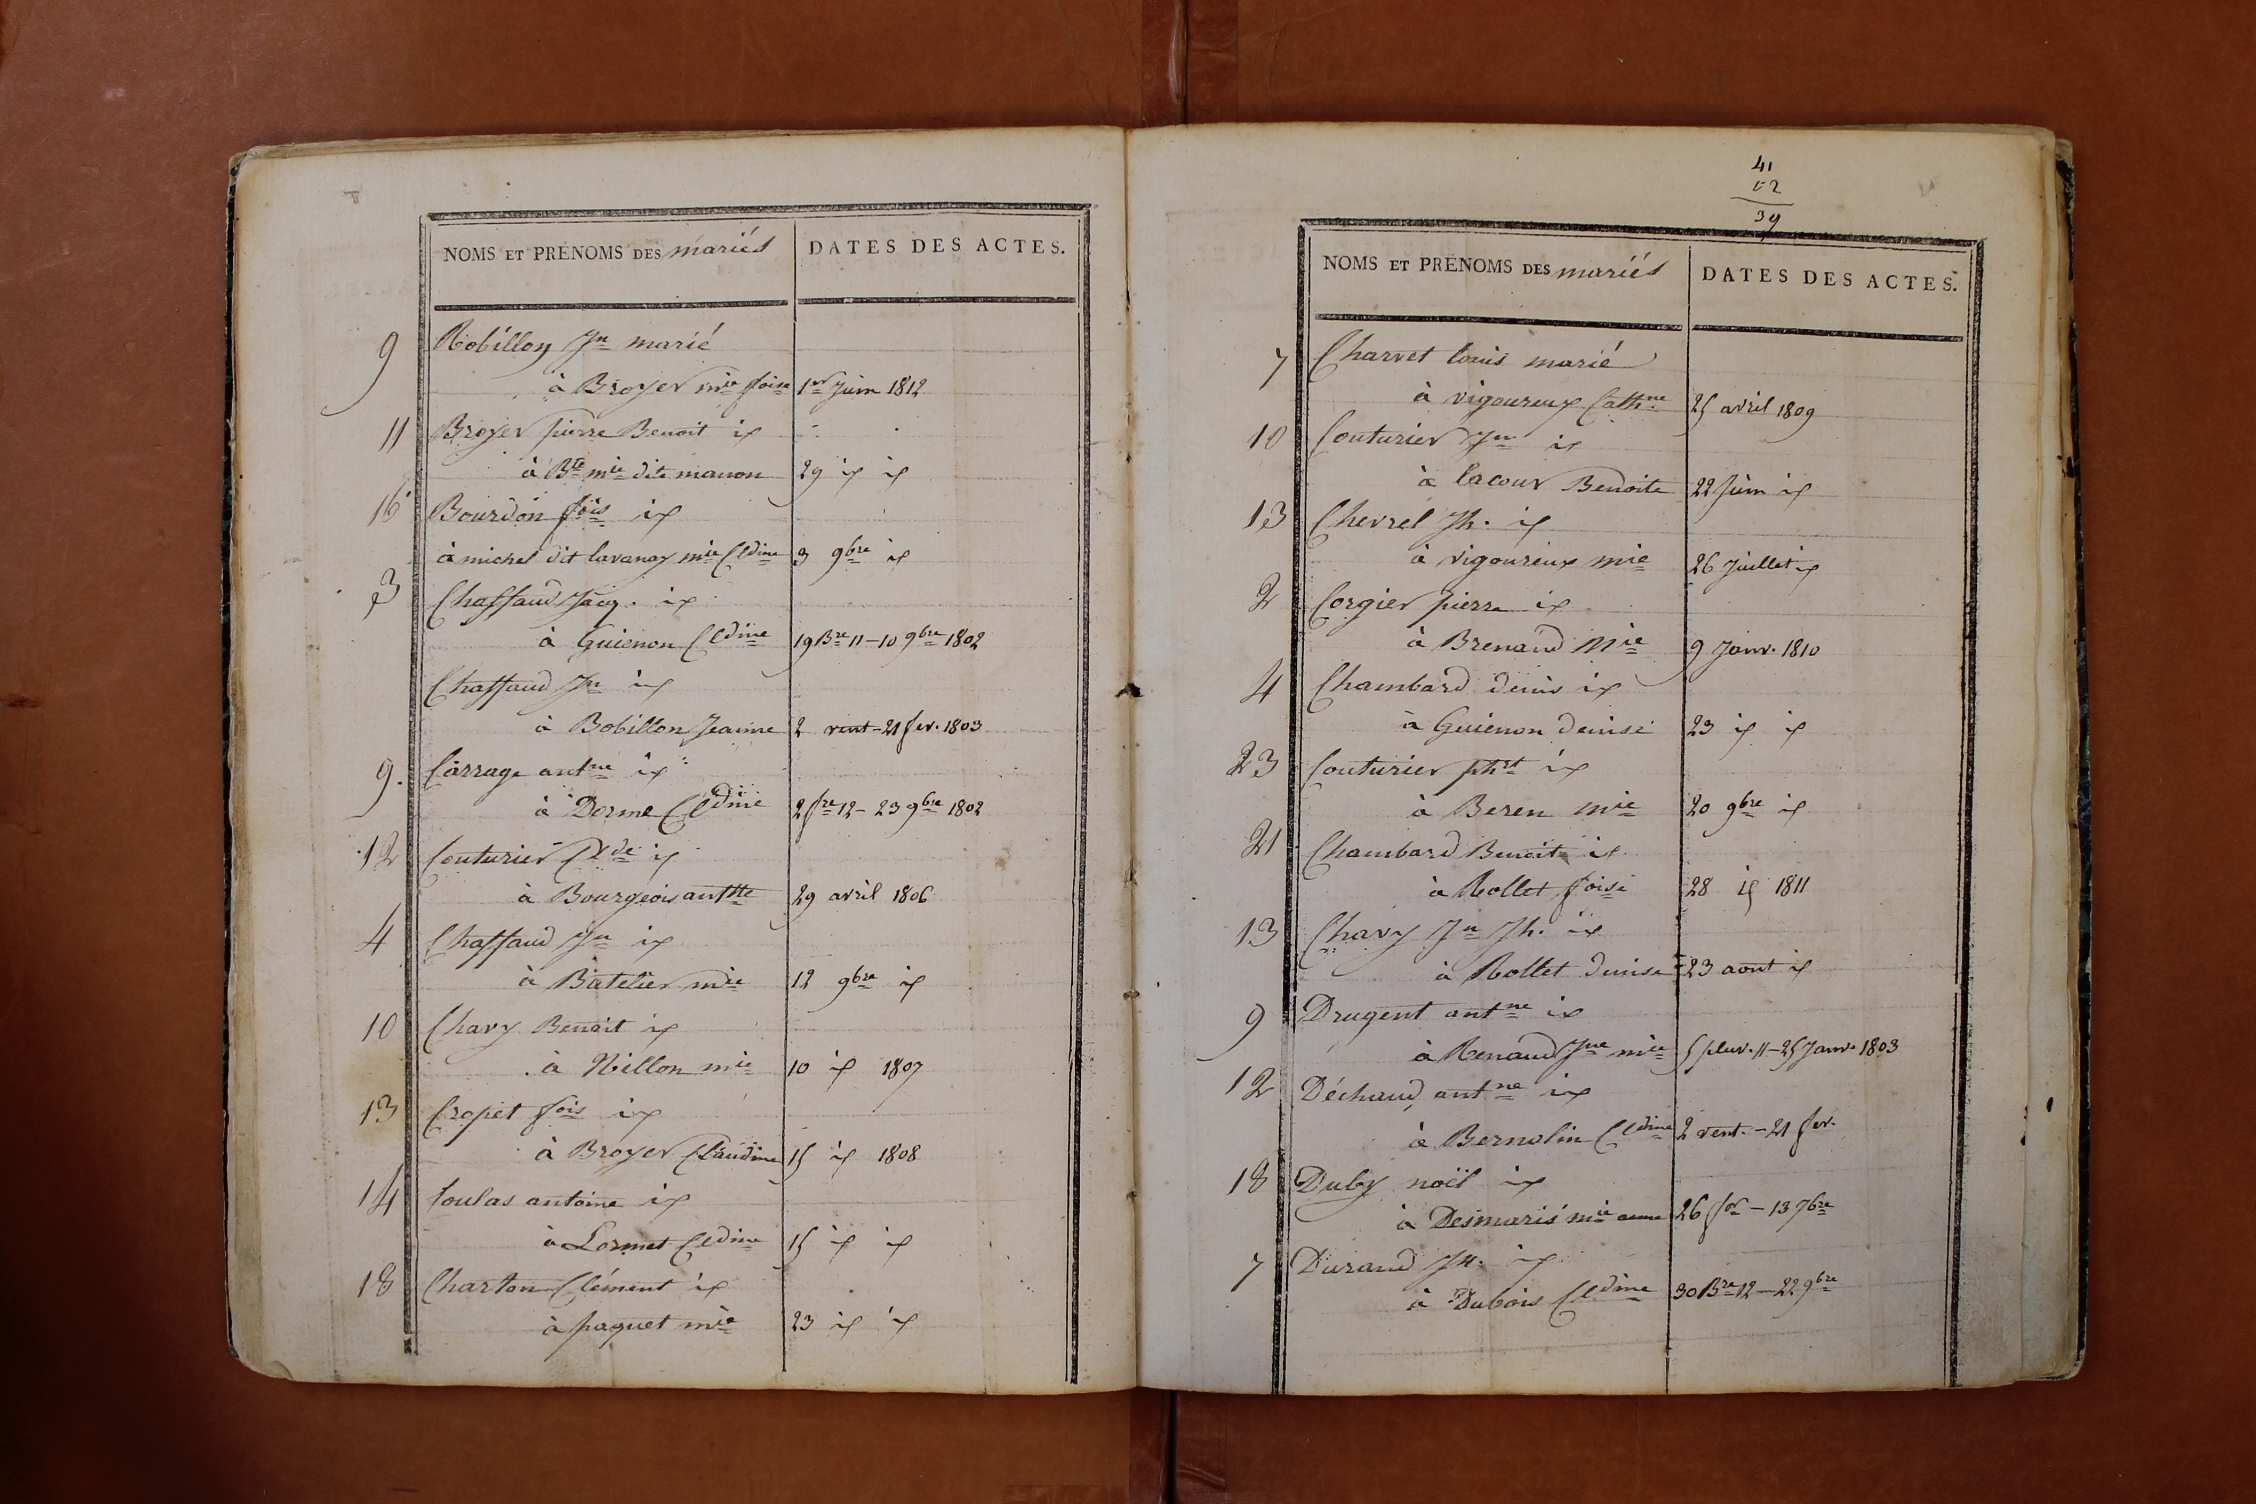 NOMS ET PRÉNOMS DES mariés DATES DES ACTES.
9 Robillon Jn marié
à Broyer mie foise 1er Juin 1812
11 Broyer pierre Benoit id
à Bte mie dite manon 29 id id
16 Bourdon fois id
à michel dit lavanay mie Cldine 3 9bre id
3 Chaffaud Jacq. id
à Guienon Cldine 19 Bre 11 - 10 9bre 1802
Chaffaud Jn id
à Bobillon Jeanne 2 vent - 21 fev. 1803
9. Carrage antne id
à Dorme Cldine 2 fre 12 - 23 9bre 1802
12 Couturier Clde id
à Bourgeois antte 29 avril 1806
4 Chaffaud Jn id
à Batelier mie 12 9bre id
10 Chavy Benoit id
à Nillon mie 10 id 1807
13 Cropet fois id
à Broyer Claudine 15 id 1808
14 Coulas antoine id
à Lormet Cldine 15 id id
18 Charton Clément id
à paquet mie 23 id id
41
02
39
NOMS ET PRÉNOMS DES mariés DATES DES ACTES.
7 Charvet louis marié
à vigoureux Cathne 25 avril 1809
10 Couturier Jn id
à lacour Benoite 22 Juin id
13 Chevrel Jh. id
à vigoureux mie 26 Juillet id
2 Corgier pierre id
à Brenaud Mie 9 Janv. 1810
4 Chambard denis id
à Guienon denise 23 id id
23 Couturier phrt id
à Beren mie 20 9bre id
21 Chambard Benoit id
à Rollet foise 28 id 1811
13 Chavy Jn Jh. id
à Rollet denise 23 aout id
9 Drugent antne id
à Renaud Jne mie 5 pluv. 11 - 25 Janv. 1803
12 Déchaud antne id
à Bernolin Cldine 2 vent. - 21 fev.
18 Duby noël id
à Desmaris mie anne 26 for - 13 7bre
7 Durand Jh. id
à Dubois Cldine 30 Bre 12 - 22 9bre